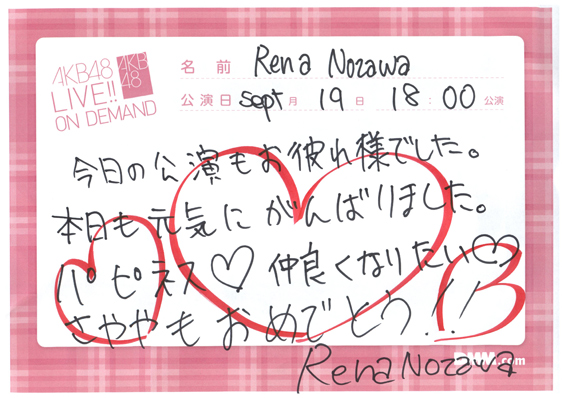 AKB48
LIVE!!
ON DEMAND
AKB
48
名 前 Rena Nozawa
公演日 Sept 月 19 日 18:00 公演
今日の公演もお彼れ様でした。
本日も元気にがんばりました。
パピネス♡仲良くなりたい♡
さややもおめでとう!!
Rena Nozawa
DMM.com